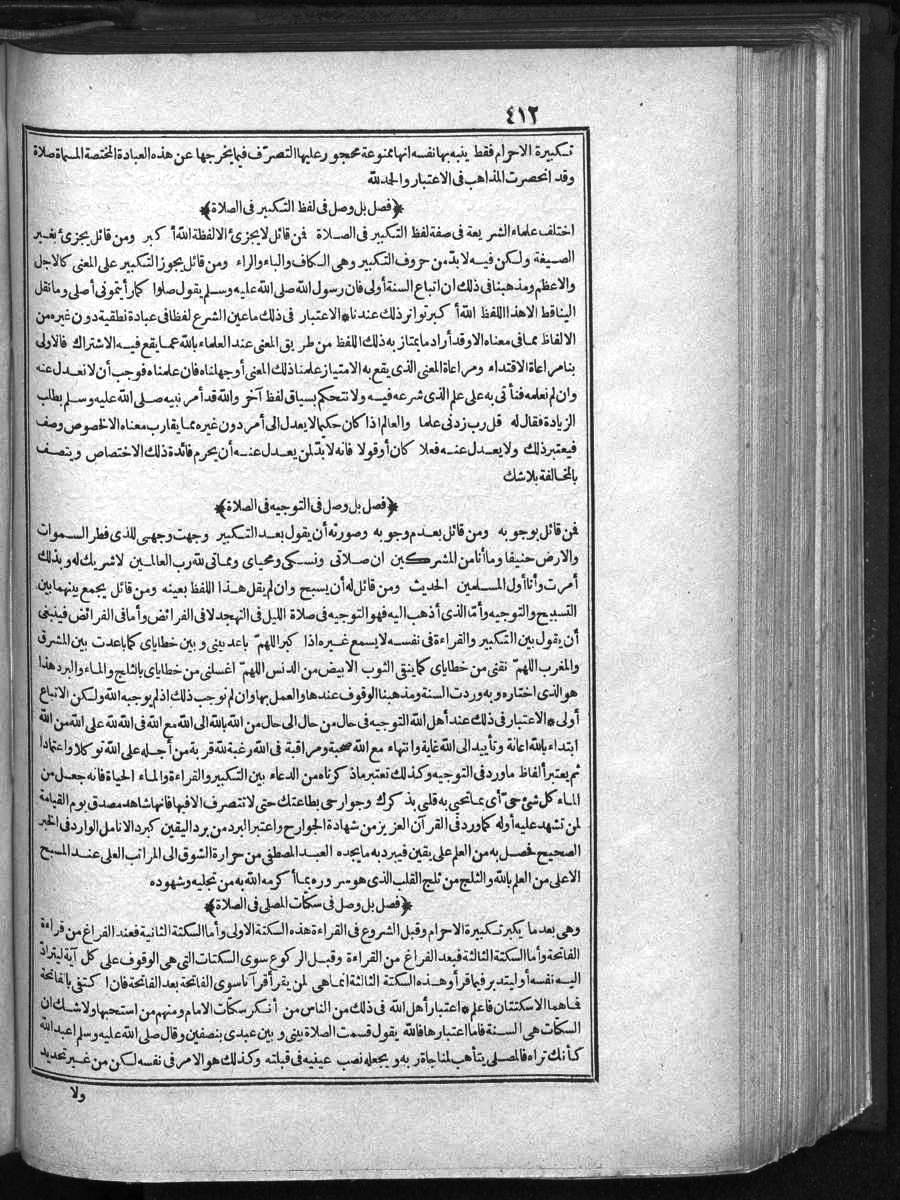 ٤١٢
تكبيرة الاحرام فقط ينبه بها نفسه انها ممنوعة محجور عليها التصرّف فيما يخرجها عن هذه العبادة المختصة المسماة صلاة
وقد انحصرت المذاهب فى الاعتبار والحد لله
﴿فصل بل وصل فى لفظ التكبير فى الصلاة﴾
اختلف علماء الشريعة فى صفة لفظ التكبير فى الصلاة فمن قائل لا يجزئ الا لفظة الله أكبر ومن قائل يجزئ بغير
الصيغة ولكن فيه لا بدّ من حروف التكبير وهى الكاف والباء والراء ومن قائل يجوز التكبير على المعنى كالاجل
والاعظم ومذهبنا فى ذلك ان اتباع السنة أولى فان رسول الله صلى الله عليه وسلم يقول صلوا كما رأيتمونى أصلى وما نقل
الينا قط الا هذا اللفظ الله أكبر تواتر ذلك عندنا * الاعتبار فى ذلك ما عين الشرع لفظا فى عبادة نطقية دون غيره من
الالفاظ مما فى معناه الا وقد أراد ما يمتاز به ذلك اللفظ من طريق المعنى عند العلماء بالله عما يقع فيه الاشتراك فالاولى
بنا مراعاة الاقتداء ومراعاة المعنى الذى يقع به الامتياز علمنا ذلك المعنى أو جهلناه فان علمناه فوجب أن لا نعدل عنه
وان لم نعلمه فنأتى به على علم الذى شرعه فيه ولا نتحكم بسياق لفظ آخر والله قد أمر نبيه صلى الله عليه وسلم بطلب
الزيادة فقال له قل رب زدنى علما والعالم اذا كان حكيما لا يعدل الى أمر دون غيره مما يقارب معناه الا لخصوص وصف
فيعتبر ذلك ولا يعدل عنه فعلا كان أو قولا فانه لا بدّ لمن يعدل عنه أن يحرم فائدة ذلك الاختصاص ويتصف
بالمخالفة بلا شك
﴿فصل بل وصل فى التوجيه فى الصلاة﴾
فمن قائل بوجوبه ومن قائل بعدم وجوبه وصورته أن يقول بعد التكبير وجهت وجهى للذى فطر السموات
والارض حنيفا وما أنا من المشركين ان صلاتى ونسكى ومحياى ومماتى لله رب العالمين لا شريك له وبذلك
أمرت وأنا أول المسلمين الحديث ومن قائل له أن يسبح وان لم يقل هذا اللفظ بعينه ومن قائل يجمع بينهما بين
التسبيح والتوجيه وأمّا الذى أذهب اليه فهو التوجيه فى صلاة الليل فى التهجد لا فى الفرائض وأما فى الفرائض فينبغى
أن يقول بين التكبير والقراءة فى نفسه لا يسمع غيره اذا كبر اللهمّ باعد بينى وبين خطاياى كما باعدت بين المشرق
والمغرب اللهمّ نقنى من خطاياى كما ينقى الثوب الابيض من الدنس اللهمّ اغسلنى من خطاياى بالثلج والماء والبرد هذا
هو الذى اختاره وبه وردت السنة ومذهبنا الوقوف عندها والعمل بها وان لم نوجب ذلك اذ لم يوجبه الله ولكن الاتباع
أولى * الاعتبار فى ذلك عند أهل الله التوجيه فى حال من حال الى حال من الله بالله الى الله مع الله فى الله لله على الله من الله
ابتداء بالله اعانة وتأييد الى الله غاية وانتهاء مع الله صحبة ومراقبة فى الله رغبة لله قربة من أجله على الله توكلا واعتمادا
ثم يعتبر ألفاظ ما ورد فى التوجيه وكذلك تعتبر ما ذكرناه من الدعاء بين التكبير والقراءة والماء الحياة فانه جعل من
الماء كل شئ حىّ أى بما تحيى به قلبى بذكرك وجوارحى بطاعتك حتى لا تتصرف الا فيها فانها شاهد مصدق يوم القيامة
لمن تشهد عليه أو له كما ورد فى القرآن العزيز من شهادة الجوارح واعتبر البرد من برد اليقين كبرد الانامل الوارد فى الخبر
الصحيح فحصل به من العلم على يقين فيبرد به ما يجده العبد المصطفى من حرارة الشوق الى المراتب العلى عند المسبح
الاعلى من العلم بالله والثلج من ثلج القلب الذى هو سروره بما أكرمه الله به من تجليه وشهوده
﴿فصل بل وصل فى سكتات المصلى فى الصلاة﴾
وهى بعد ما يكبر تكبيرة الاحرام وقبل الشروع فى القراءة هذه السكتة الاولى وأما السكتة الثانية فعند الفراغ من قراءة
الفاتحة وأما السكتة الثالثة فبعد الفراغ من القراءة وقبل الركوع سوى السكتات التى هى الوقوف على كل آية ليترادّ
اليه نفسه أو ليتدبر فيما قرأ وهذه السكتة الثالثة انما هى لمن يقرأ قرآنا سوى الفاتحة بعد الفاتحة فان اكتفى بالفاتحة
فما هما الا سكتتان فاعلم * اعتبار أهل الله فى ذلك من الناس من أنكر سكتات الامام ومنهم من استحبها ولا شك ان
السكتات هى السنة فاما اعتبارها فالله يقول قسمت الصلاة بينى وبين عبدى بنصفين وقال صلى الله عليه وسلم اعبد الله
كأنك تراه فالمصلى يتأهب لمناجاة ربه ويجعله نصب عينيه فى قبلته وكذلك هو الامر فى نفسه لكن من غير تحديد
ولا